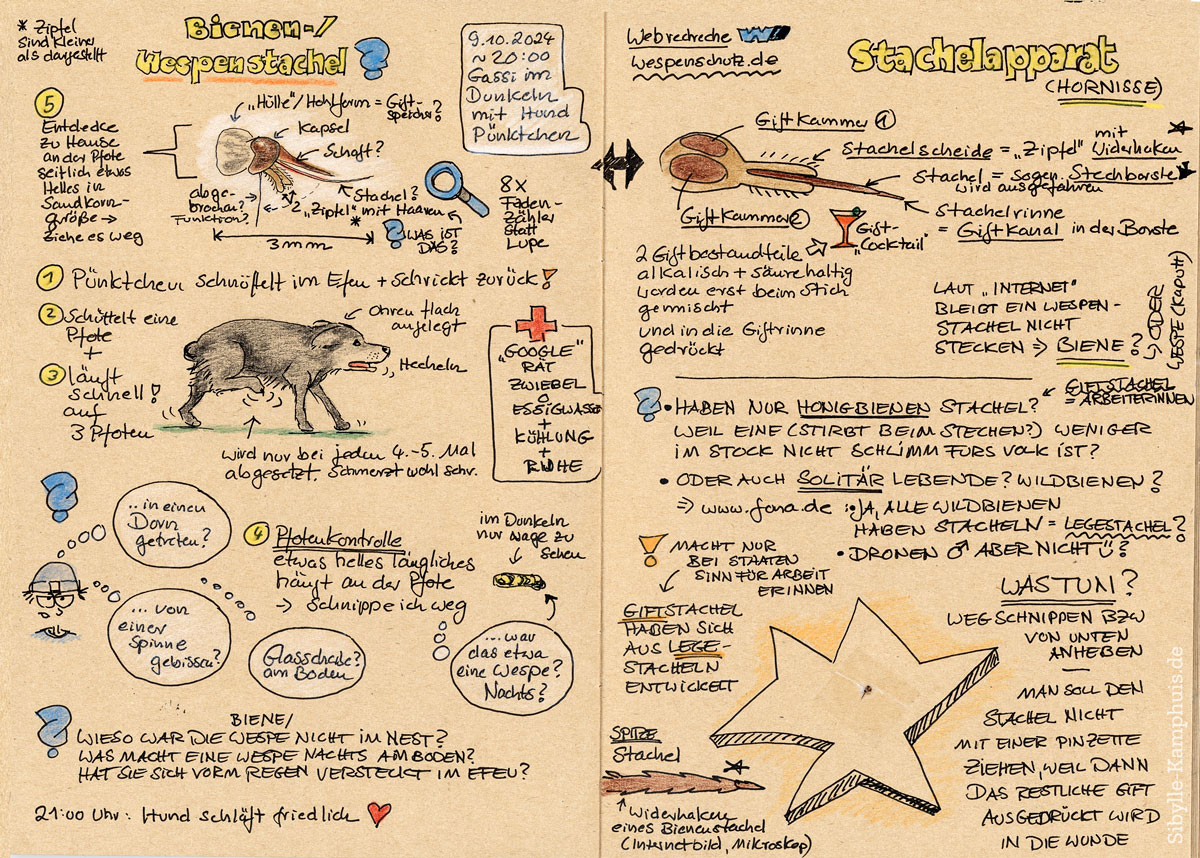 * Zipfel
sind kleiner
als dargestellt
Bienen-/
Wespenstachel ?
9.10.2024
~ 20:00
Gassi im
Dunkeln
mit Hund
Pünktchen
5
Entdecke
zu Hause
an der Pfote
seitlich etwas
Helles in
Sandkorn-
größe →
Ziehe es weg
"Hülle"/Hohlform = Gift-
speicher?
Kapsel
Schaft?
Stachel?
"Zipfel" mit Haaren
*
abge-
brochen?
Funktion?
3mm
? WAS IST
DAS?
8x
Faden-
Zähler
statt
Lupe
1 Pünktchen schnüffelt im Efeu + schrickt zurück!
2 Schüttelt eine
Pfote
+
3 läuft
schnell!
auf
3 Pfoten
Ohren flach
angelegt
Hecheln
wird nur bei jedem 4.-5. Mal
abgesetzt. Schmerzt wohl sehr.
"GOOGLE"
RÄT
ZWIEBEL
o
ESSIGWASSER
+
KÜHLUNG
+
RUHE
?
...in einen
Dorn
getreten?
... von
einer
Spinne
gebissen?
Glasscherbe?
am Boden
4 Pfotenkontrolle
etwas helles längliches
hängt an der Pfote
→ Schnippe ich weg
im Dunkeln
nur vage zu
sehen
...war
das etwa
eine Wespe?
Nachts?
?
BIENE/
WIESO WAR DIE WESPE NICHT IM NEST?
WAS MACHT EINE WESPE NACHTS AM BODEN?
HAT SIE SICH VORM REGEN VERSTECKT IM EFEU?
21:00 Uhr: Hund schläft friedlich
Webrecherche
wespenschutz.de
Stachelapparat
(HORNISSE)
Giftkammer 1
Giftkammer 2
Stachelscheide = "Zipfel" mit Widerhaken *
Stachel = sogen. Stechborste
wird ausgefahren
Stachelrinne
= Giftkanal in der Borste
"Gift-
Cocktail"
2 Giftbestandteile
alkalisch + säurehaltig
werden erst beim Stich
gemischt
und in die Giftrinne
gedrückt
LAUT "INTERNET"
BLEIBT EIN WESPEN-
STACHEL NICHT
STECKEN ⇒ BIENE?
ODER
WESPE (Kaputt)
GIFTSTACHEL
= ARBEITERINNEN
? • HABEN NUR HONIGBIENEN STACHEL?
WEIL EINE (STIRBT BEIM STECHEN?) WENIGER
IM STOCK NICHT SCHLIMM FÜRS VOLK IST?
• ODER AUCH SOLITÄR LEBENDE? WILDBIENEN?
⇒ www.fona.de : • JA, ALLE WILDBIENEN
HABEN STACHELN = LEGESTACHEL?
• DRONEN ♂ ABER NICHT ?
! MACHT NUR
BEI STAATEN
SINN FÜR ARBEIT
ERINNEN
GIFTSTACHEL
HABEN SICH
AUS LEGE-
STACHELN
ENTWICKELT
SPITZE
Stachel
*
Widerhaken
eines Bienenstachel
(Internetbild, Mikroskop)
WAS TUN?
WEGSCHNIPPEN BZW
VON UNTEN
ANHEBEN
—
MAN SOLL DEN
STACHEL NICHT
MIT EINER PINZETTE
ZIEHEN, WEIL DANN
DAS RESTLICHE GIFT
AUSGEDRÜCKT WIRD
IN DIE WUNDE
Sibylle-Kamphuis.de